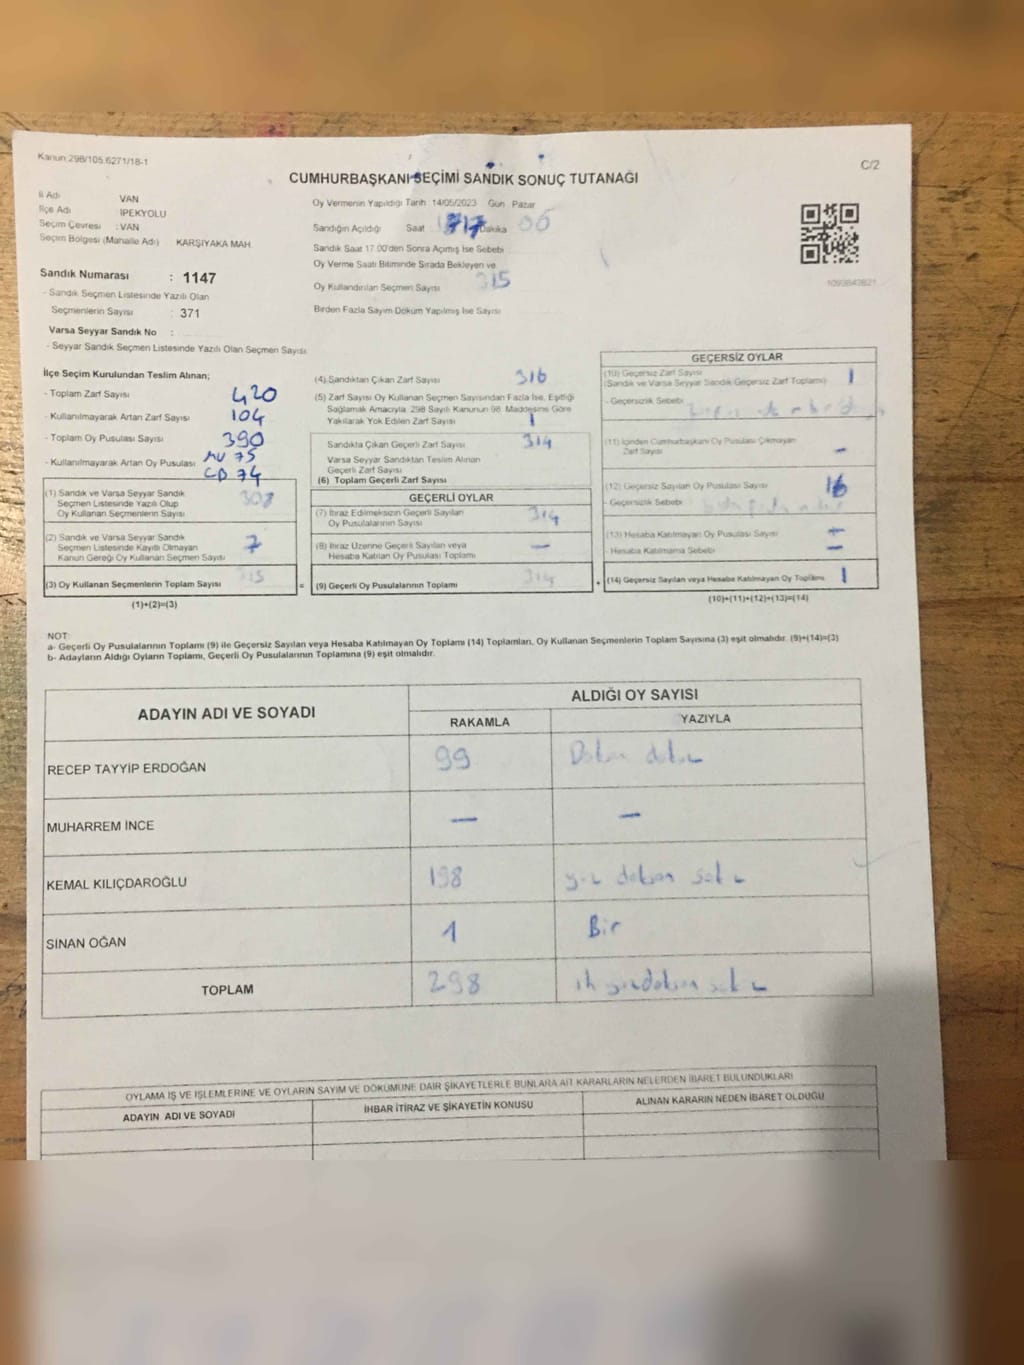 Kanun:298/105.6271/18-1
C/2
CUMHURBAŞKANI SEÇİMİ SANDIK SONUÇ TUTANAĞI
İl Adı VAN
İlçe Adı İPEKYOLU
Seçim Çevresi : VAN
Seçim Bölgesi (Mahalle Adı) KARŞIYAKA MAH.
Sandık Numarası : 1147
- Sandık Seçmen Listesinde Yazılı Olan
Seçmenlerin Sayısı : 371
Varsa Seyyar Sandık No :
- Seyyar Sandık Seçmen Listesinde Yazılı Olan Seçmen Sayısı
Oy Vermenin Yapıldığı Tarih 14/05/2023 Gün Pazar
Sandığın Açıldığı Saat 17 Dakika 06
Sandık Saat 17.00'den Sonra Açılmış İse Sebebi
Oy Verme Saati Bitiminde Sırada Bekleyen ve
Oy Kullandırılan Seçmen Sayısı 315
Birden Fazla Sayım Döküm Yapılmış İse Sayısı
1093843821
İlçe Seçim Kurulundan Teslim Alınan;
- Toplam Zarf Sayısı 420
- Kullanılmayarak Artan Zarf Sayısı 104
- Toplam Oy Pusulası Sayısı 390
- Kullanılmayarak Artan Oy Pusulası MV 75
CB 74
(1) Sandık ve Varsa Seyyar Sandık
Seçmen Listesinde Yazılı Olup
Oy Kullanan Seçmenlerin Sayısı 308
(2) Sandık ve Varsa Seyyar Sandık
Seçmen Listesinde Kayıtlı Olmayan
Kanun Gereği Oy Kullanan Seçmen Sayısı 7
(3) Oy Kullanan Seçmenlerin Toplam Sayısı 315 =
(1)+(2)=(3)
(4) Sandıktan Çıkan Zarf Sayısı 316
(5) Zarf Sayısı Oy Kullanan Seçmen Sayısından Fazla İse, Eşitliği
Sağlamak Amacıyla, 298 Sayılı Kanunun 98. Maddesine Göre
Yakılarak Yok Edilen Zarf Sayısı 1
Sandıkta Çıkan Geçerli Zarf Sayısı 314
Varsa Seyyar Sandıktan Teslim Alınan
Geçerli Zarf Sayısı
(6) Toplam Geçerli Zarf Sayısı
GEÇERLİ OYLAR
(7) İtiraz Edilmeksizin Geçerli Sayılan
Oy Pusulalarının Sayısı 314
(8) İtiraz Üzerine Geçerli Sayılan veya
Hesaba Katılan Oy Pusulası Toplamı —
(9) Geçerli Oy Pusulalarının Toplamı 314 +
GEÇERSİZ OYLAR
(10) Geçersiz Zarf Sayısı
(Sandık ve Varsa Seyyar Sandık Geçersiz Zarf Toplamı) 1
- Geçersizlik Sebebi
(11) İçinden Cumhurbaşkanı Oy Pusulası Çıkmayan
Zarf Sayısı —
(12) Geçersiz Sayılan Oy Pusulası Sayısı 16
- Geçersizlik Sebebi
(13) Hesaba Katılmayan Oy Pusulası Sayısı —
- Hesaba Katılmama Sebebi —
(14) Geçersiz Sayılan veya Hesaba Katılmayan Oy Toplamı 1
(10)+(11)+(12)+(13)=(14)
NOT:
a- Geçerli Oy Pusulalarının Toplamı (9) ile Geçersiz Sayılan veya Hesaba Katılmayan Oy Toplamı (14) Toplamları, Oy Kullanan Seçmenlerin Toplam Sayısına (3) eşit olmalıdır. (9)+(14)=(3)
b- Adayların Aldığı Oyların Toplamı, Geçerli Oy Pusulalarının Toplamına (9) eşit olmalıdır.
ADAYIN ADI VE SOYADI
ALDIĞI OY SAYISI
RAKAMLA YAZIYLA
RECEP TAYYİP ERDOĞAN 99 Doksan dokuz
MUHARREM İNCE — —
KEMAL KILIÇDAROĞLU 198 yüz doksan sekiz
SİNAN OĞAN 1 Bir
TOPLAM 298 iki yüzdoksan sekiz
OYLAMA İŞ VE İŞLEMLERİNE VE OYLARIN SAYIM VE DÖKÜMÜNE DAİR ŞİKAYETLERLE BUNLARA AİT KARARLARIN NELERDEN İBARET BULUNDUKLARI
ADAYIN ADI VE SOYADI İHBAR İTİRAZ VE ŞİKAYETİN KONUSU ALINAN KARARIN NEDEN İBARET OLDUĞU